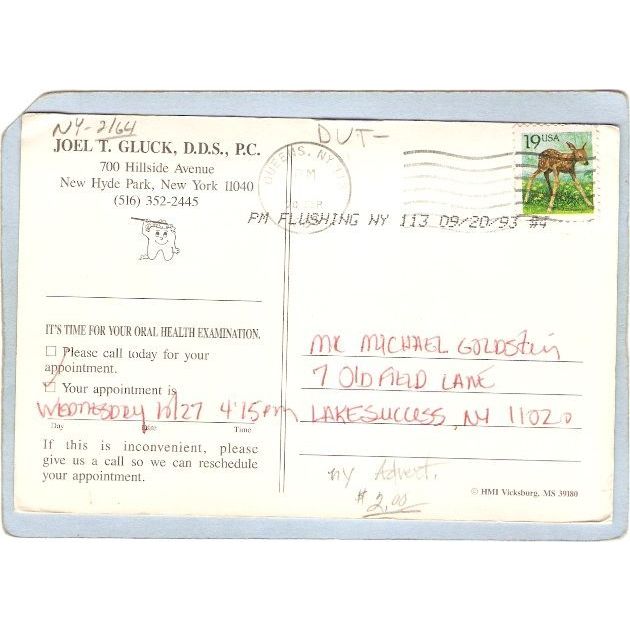 NY-2164
JOEL T. GLUCK, D.D.S., P.C.
700 Hillside Avenue
New Hyde Park, New York 11040
(516) 352-2445
DUT-
19 USA
QUEENS, NY
PM
20
PM FLUSHING NY 113 09/20/93 #4
IT'S TIME FOR YOUR ORAL HEALTH EXAMINATION.
Please call today for your
appointment.
Your appointment is
WEDNESDAY 10/27 4:15pm
Day Date Time
If this is inconvenient, please
give us a call so we can reschedule
your appointment.
MR MICHAEL GOLDSTEIN
7 OLD FIELD LANE
LAKE SUCCESS, NY 11020
ny Advert.
$2.00
© HMI Vicksburg, MS 39180